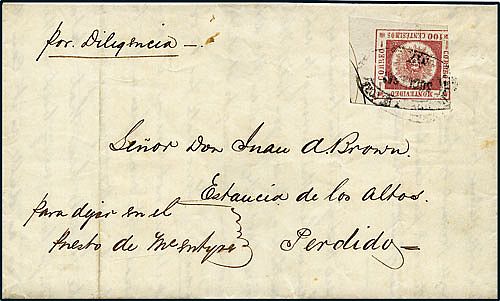 por Diligencia —
100 CENTESIMOS
CORREO
MONTEVIDEO
Señor Don Juan A. Brown.
Estancia de los Altos.
Perdido —
para dejar en el
Puesto de McEntyre